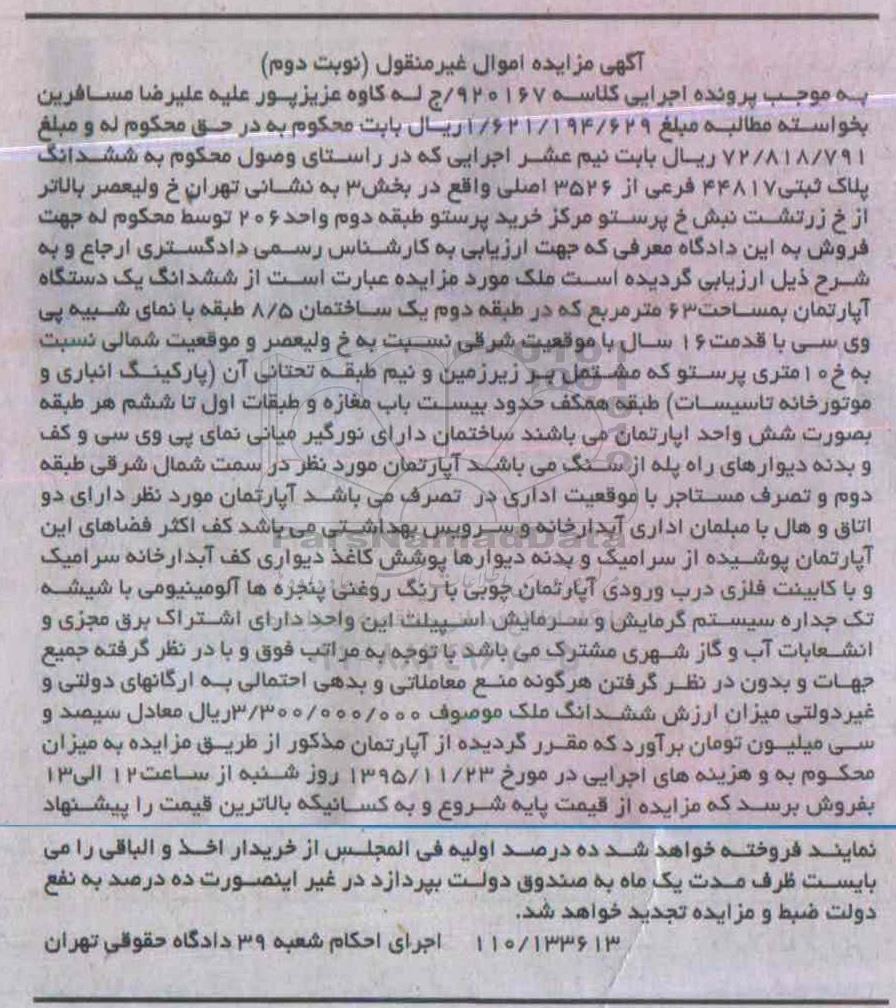 آگهی مزایده اموال غیرمنقول (نوبت دوم)
به موجب پرونده اجرایی کلاسه ۹۲۰۱۶۷/ج له کاوه عزیزپور علیه علیرضا مسافرین
بخواسته مطالبه مبلغ ۱/۶۲۱/۱۹۴/۶۲۹ریال بابت محکوم به در حق محکوم له و مبلغ
۷۲/۸۱۸/۷۹۱ ریال بابت نیم عشر اجرایی که در راستای وصول محکوم به ششدانگ
پلاک ثبتی۴۴۸۱۷ فرعی از ۳۵۲۶ اصلی واقع در بخش۳ به نشانی تهران خ ولیعصر بالاتر
از خ زرتشت نبش خ پرستو مرکز خرید پرستو طبقه دوم واحد۲۰۶ توسط محکوم له جهت
فروش به این دادگاه معرفی که جهت ارزیابی به کارشناس رسمی دادگستری ارجاع و به
شرح ذیل ارزیابی گردیده است ملک مورد مزایده عبارت است از ششدانگ یک دستگاه
آپارتمان بمساحت۶۳ مترمربع که در طبقه دوم یک ساختمان ۸/۵ طبقه با نمای شبیه پی
وی سی با قدمت۱۶ سال با موقعیت شرقی نسبت به خ ولیعصر و موقعیت شمالی نسبت
به خ۱۰متری پرستو که مشتمل بر زیرزمین و نیم طبقه تحتانی آن (پارکینگ انباری و
موتورخانه تاسیسات) طبقه همکف حدود بیست باب مغازه و طبقات اول تا ششم هر طبقه
بصورت شش واحد اپارتمان می باشند ساختمان دارای نورگیر میانی نمای پی وی سی و کف
و بدنه دیوارهای راه پله از سنگ می باشد آپارتمان مورد نظر در سمت شمال شرقی طبقه
دوم و تصرف مستاجر با موقعیت اداری در تصرف می باشد آپارتمان مورد نظر دارای دو
اتاق و هال با مبلمان اداری آبدارخانه و سرویس بهداشتی می باشد کف اکثر فضاهای این
آپارتمان پوشیده از سرامیک و بدنه دیوارها پوشش کاغذ دیواری کف آبدارخانه سرامیک
و با کابینت فلزی درب ورودی آپارتمان چوبی با رنگ روغنی پنجره ها آلومینیومی با شیشه
تک جداره سیستم گرمایش و سرمایش اسپیلت این واحد دارای اشتراک برق مجزی و
انشعابات آب و گاز شهری مشترک می باشد با توجه به مراتب فوق و با در نظر گرفته جمیع
جهات و بدون در نظر گرفتن هرگونه منع معاملاتی و بدهی احتمالی به ارگانهای دولتی و
غیردولتی میزان ارزش ششدانگ ملک موصوف ۳/۳۰۰/۰۰۰/۰۰۰ریال معادل سیصد و
سی میلیون تومان برآورد که مقرر گردیده از آپارتمان مذکور از طریق مزایده به میزان
محکوم به و هزینه های اجرایی در مورخ ۱۳۹۵/۱۱/۲۳ روز شنبه از ساعت۱۲ الی۱۳
بفروش برسد که مزایده از قیمت پایه شروع و به کسانیکه بالاترین قیمت را پیشنهاد
نمایند فروخته خواهد شد ده درصد اولیه فی المجلس از خریدار اخذ و الباقی را می
بایست ظرف مدت یک ماه به صندوق دولت بپردازد در غیر اینصورت ده درصد به نفع
دولت ضبط و مزایده تجدید خواهد شد.
۱۱۰/۱۳۳۶۱۳ اجرای احکام شعبه ۳۹ دادگاه حقوقی تهران
ParsNamadData